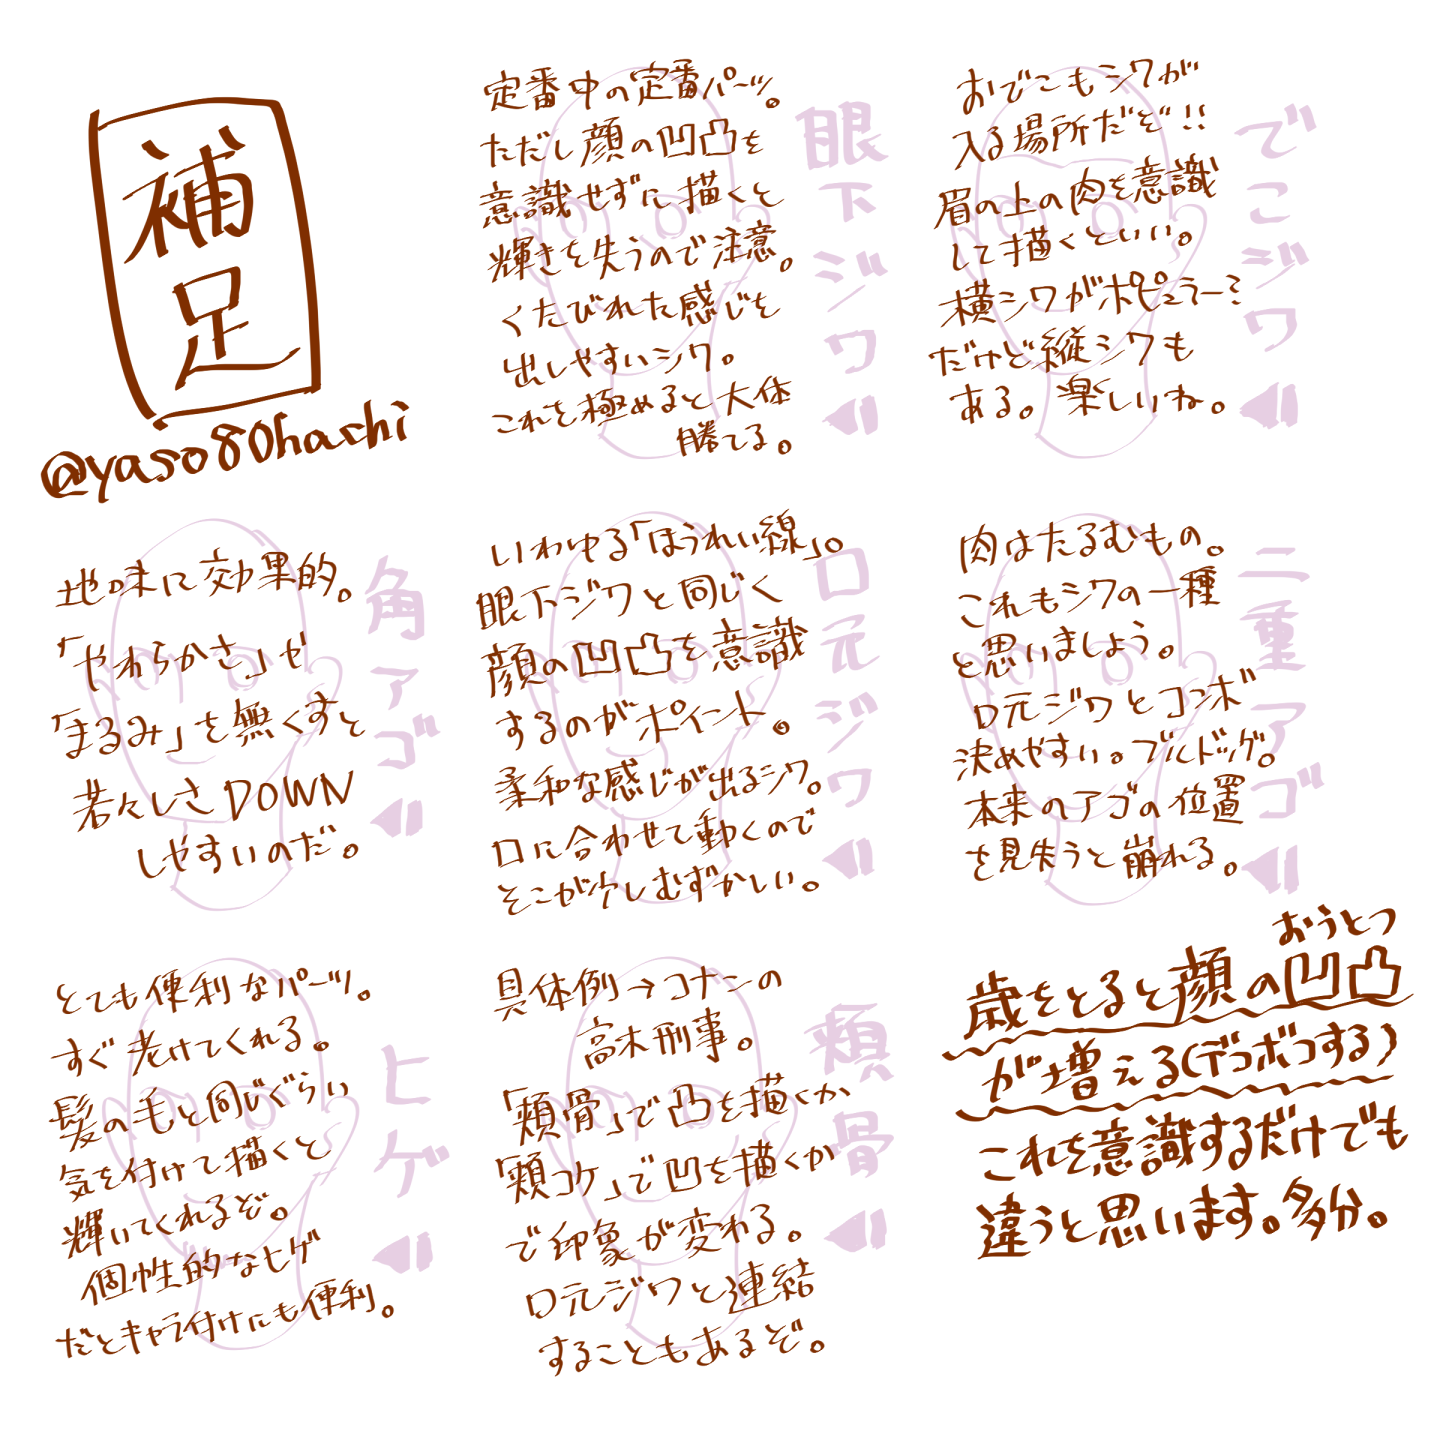 補足
@yaso80hachi
定番中の定番パーツ。
ただし顔の凹凸を
意識せずに描くと
輝きを失うので注意。
くたびれた感じを
出しやすいシワ。
これを極めると大体
勝てる。
眼下ジワ
おでこもシワが
入る場所だぞ!!
眉の上の肉を意識
して描くといい。
横シワがポピュラー
だけど縦シワも
ある。楽しいね。
でこジワ
地味に効果的。
「やわらかさ」や
「まるみ」を無くすと
若々しさDOWN
しやすいのだ。
角アゴ
いわゆる「ほうれい線」。
眼下ジワと同じく
顔の凹凸を意識
するのがポイント。
柔和な感じが出るシワ。
口に合わせて動くので
そこが少しむずかしい。
口元ジワ
肉はたるむもの。
これもシワの一種
と思いましょう。
口元ジワとコンボ
決めやすい。ブルドッグ。
本来のアゴの位置
を見失うと崩れる。
二重アゴ
とても便利なパーツ。
すぐ老けてくれる。
髪の毛と同じぐらい
気を付けて描くと
輝いてくれるぞ。
個性的なヒゲ
だとキャラ付けにも便利。
ヒゲ
具体例→コナンの
高木刑事。
「頬骨」で凸を描くか
「頬コケ」で凹を描くか
で印象が変わる。
口元ジワと連結
することもあるぞ。
頬骨
おうとつ
歳をとると顔の凹凸
が増える(デコボコする)
これを意識するだけでも
違うと思います。多分。